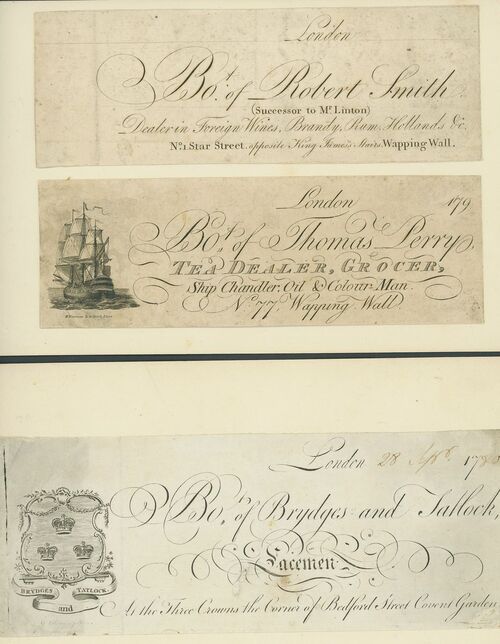 London
Bo.t of Robert Smith
(Successor to Mr. Linton)
Dealer in Foreign Wines, Brandy, Rum, Hollands &c.
No. 1 Star Street, opposite King James's Stairs, Wapping Wall.
London 179
Bo.t of Thomas Perry,
TEA DEALER, GROCER,
Ship Chandler, Oil & Colour-Man.
No. 77, Wapping Wall
London 28 1780
Bo.t of Brydges and Tatlock,
Lacemen
BRYDGES TATLOCK
and
At the Three Crowns the Corner of Bedford Street Covent Garden